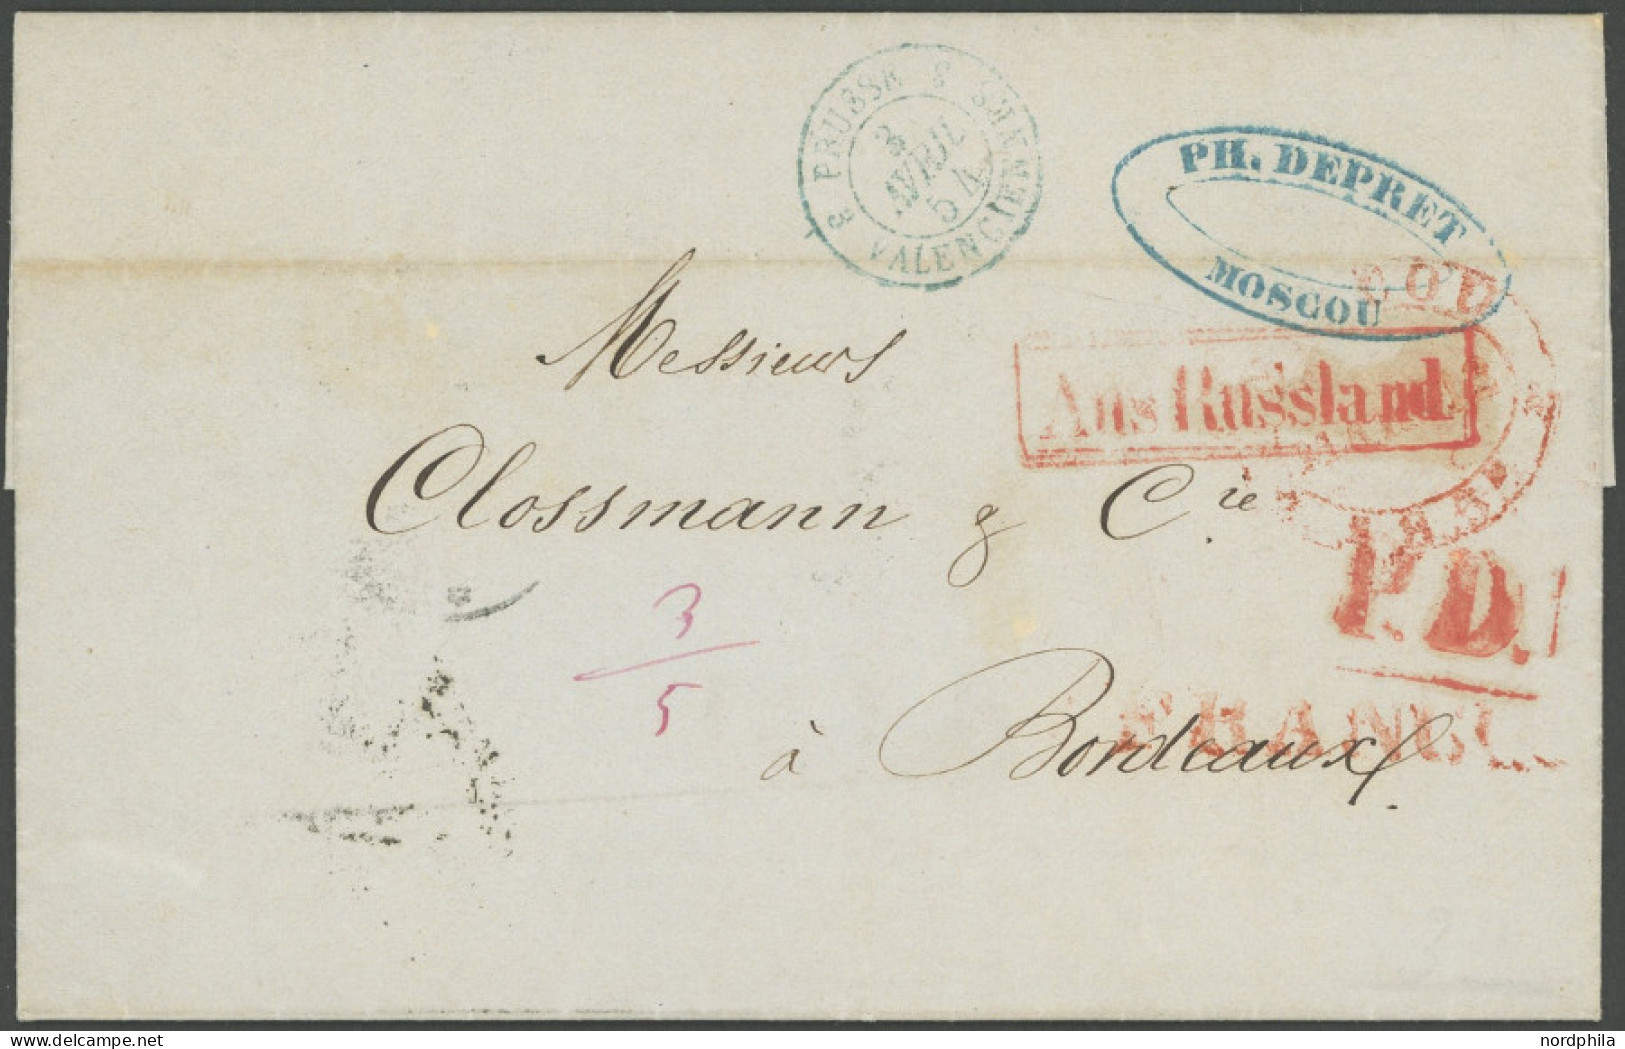 3 PRUSSE 3
3
AVRIL
54
VALENCIENNES
PH. DEPRET
MOSCOU
Aus Russland
Messieurs
Clossmann & Cie
P.D.
3
5
FRANCO
à Bordeaux
nordphila